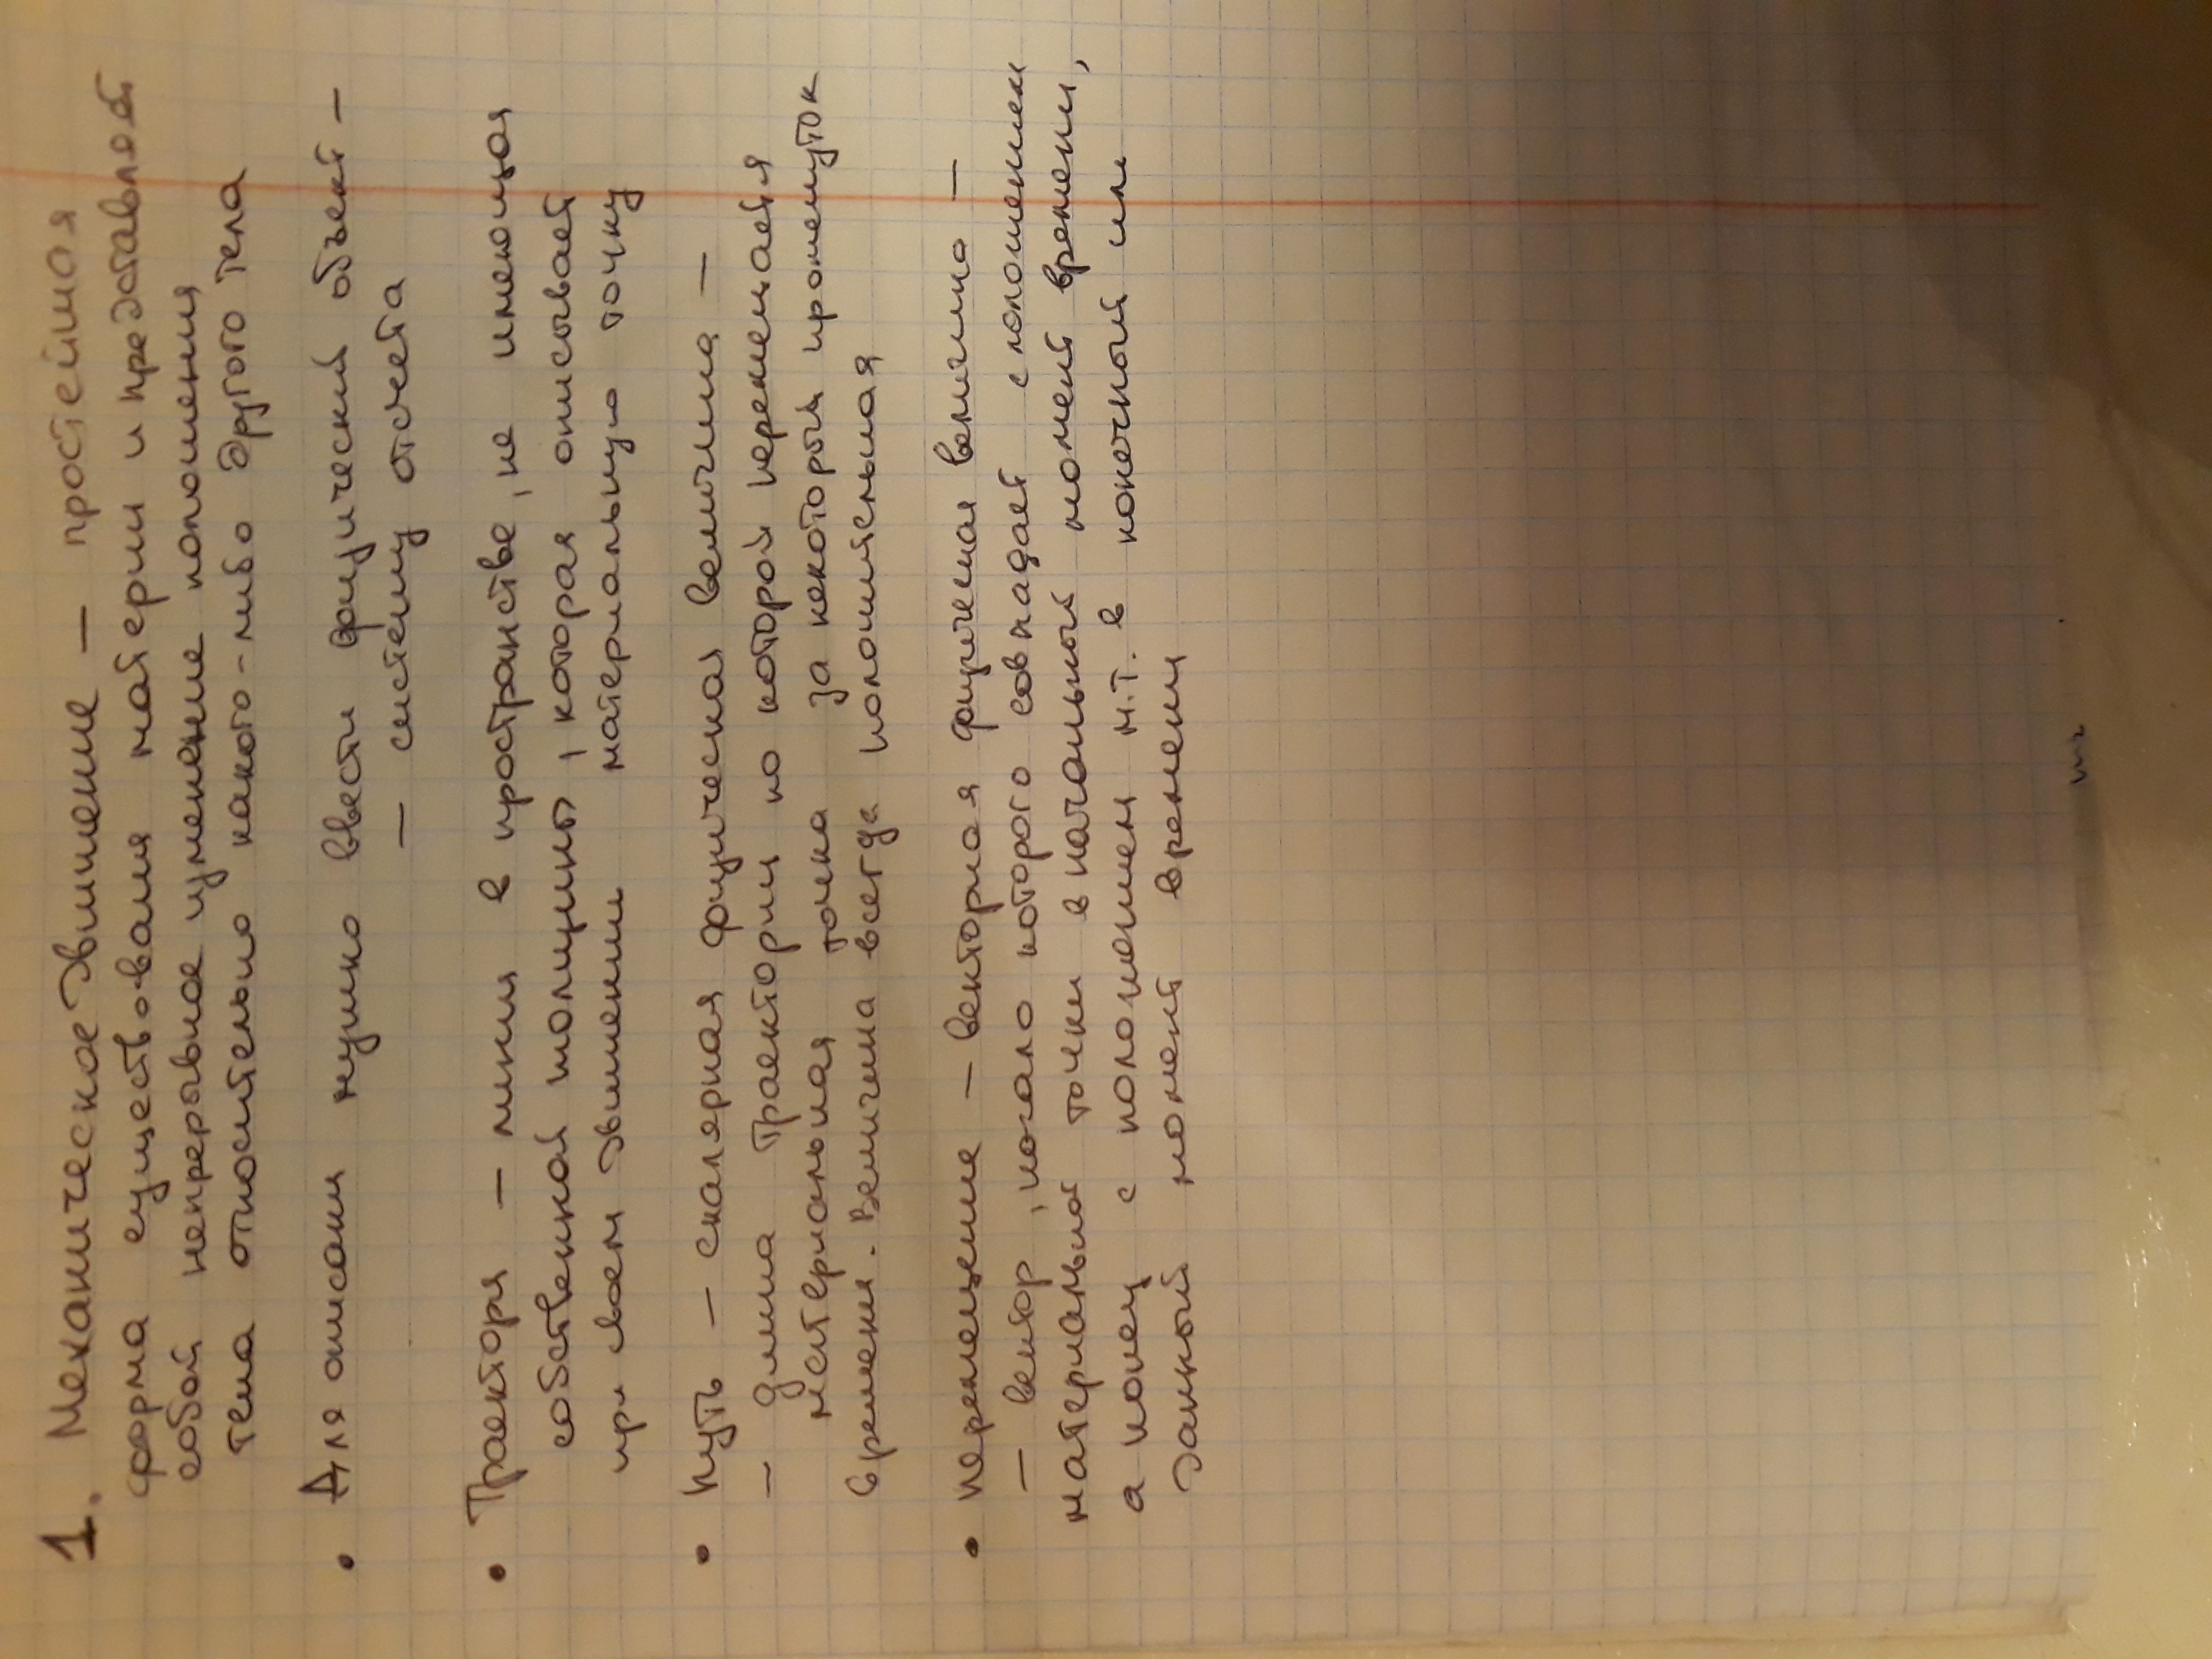 1. Механическое движение — простейшая
форма существования материи и представляет
собой непрерывное изменение положения
тела относительно какого-либо другого тела
• Для описани нужно ввести физический объект —
— систему отсчета
• Траектория — линия в пространстве, не имеющая
собственной толщины, которая описывает
при своем движении материальную точку
• Путь — скалярная физическая величина —
— длина траектории по которой перемещается
материальная точка за некоторый промежуток
времени. Величина всегда положительная
• Перемещение — векторная физическая величина —
— вектор, начало которого совпадает с положением
материальной точки в начальный момент времени,
а конец с положением м.т. в конечный или
данный момент времени